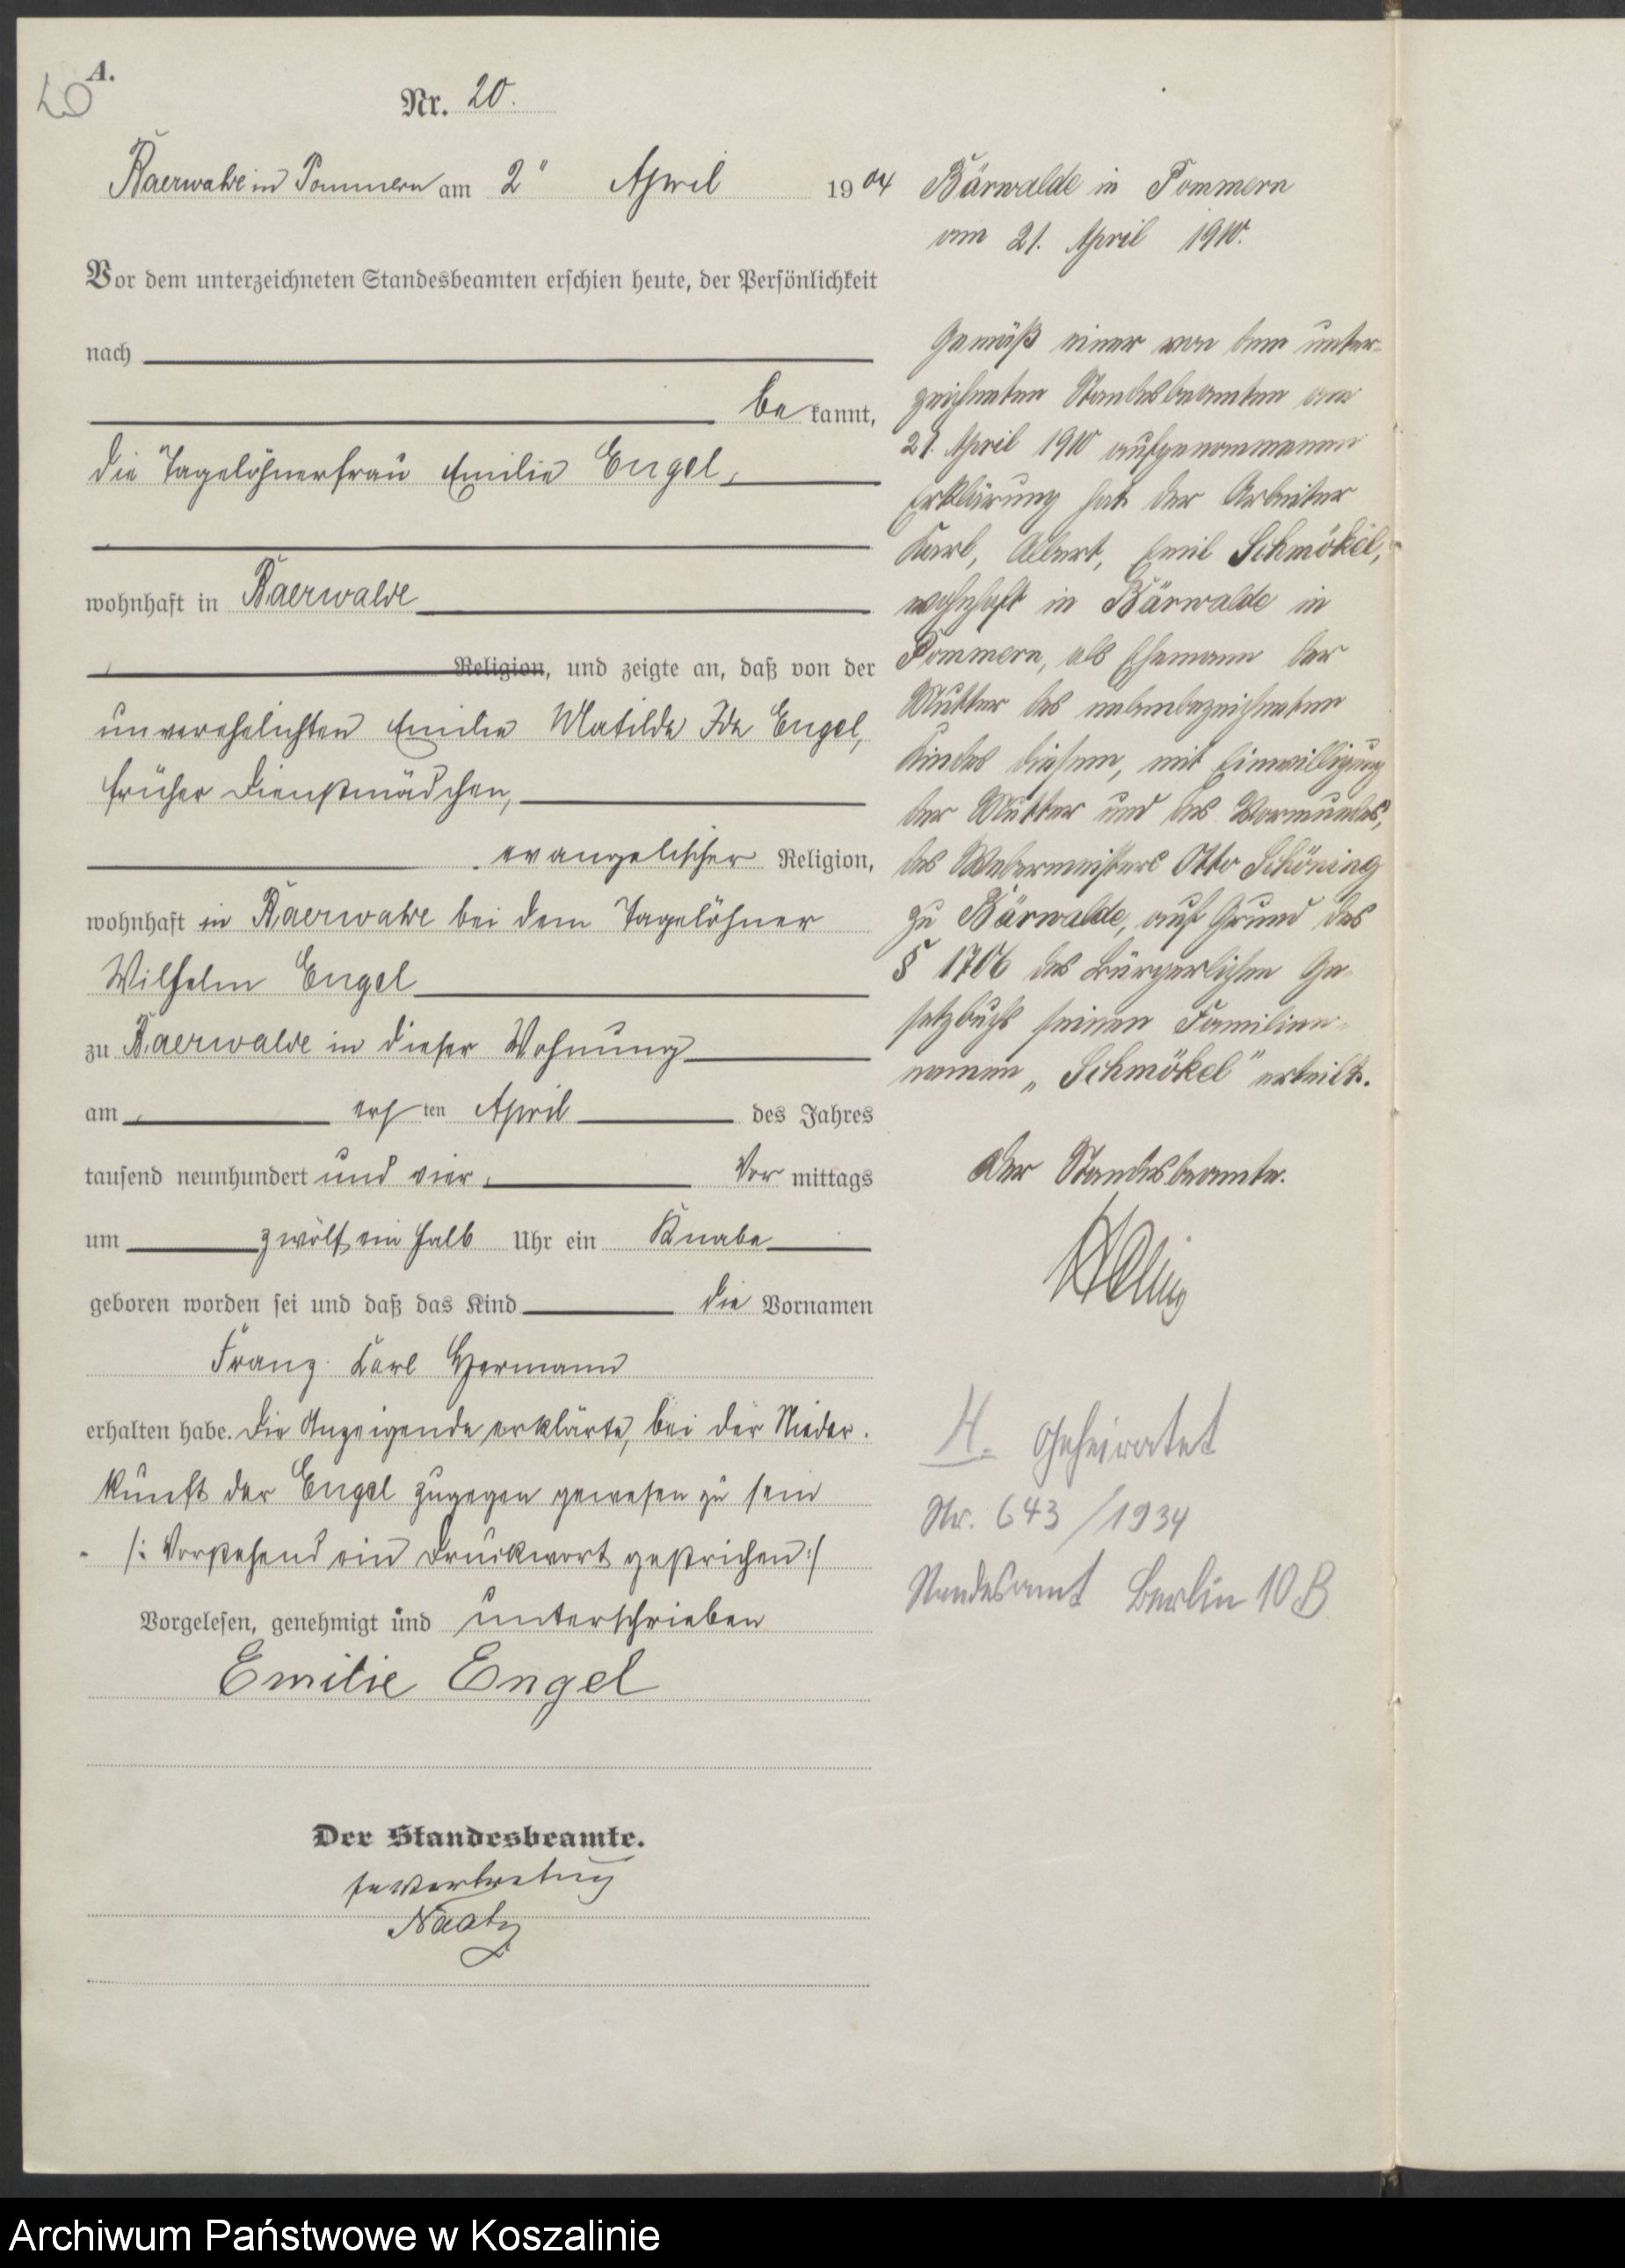 A.
20
Nr. 20.
Baerwalde in Pommern am 2ⁿ April 1904
Vor dem unterzeichneten Standesbeamten erschien heute, der Persönlichkeit
nach
bekannt,
die Tagelöhnerfrau Emilie Engel,
wohnhaft in Baerwalde
Religion, und zeigte an, daß von der
unverehelichten Emilie Matilde Ida Engel,
früher Dienstmädchen,
evangelischer Religion,
wohnhaft in Baerwalde bei dem Tagelöhner
Wilhelm Engel
zu Baerwalde in dieser Wohnung
am ersten April des Jahres
tausend neunhundert und vier, Vormittags
um zwölf ein halb Uhr ein Knabe
geboren worden sei und daß das Kind die Vornamen
Franz Karl Hermann
erhalten habe. Die Anzeigende erklärte, bei der Nieder-
kunft der Engel zugegen gewesen zu sein
/: Vorstehend ein Druckwort gestrichen :/
Vorgelesen, genehmigt und unterschrieben
Emilie Engel
Der Standesbeamte.
In Vertretung
Naatz
Bärwalde in Pommern
am 21. April 1910.
Gemäß einer von dem unter-
zeichneten Standesbeamten am
21. April 1910 aufgenommenen
Erklärung hat der Arbeiter
Karl, Albert, Emil Schmökel,
wohnhaft in Bärwalde in
Pommern, als Ehemann der
Mutter des nebenbezeichneten
Kindes diesem, mit Einwilligung
der Mutter und des Vormundes,
des Webermeisters Otto Schöning
zu Bärwalde, auf Grund des
§ 1706 des Bürgerlichen Ge-
setzbuchs seinen Familien-
namen „Schmökel" erteilt.
Der Standesbeamte.
H. Geheiratet
Nr. 643/1934
Standesamt Berlin 10 B
Archiwum Państwowe w Koszalinie